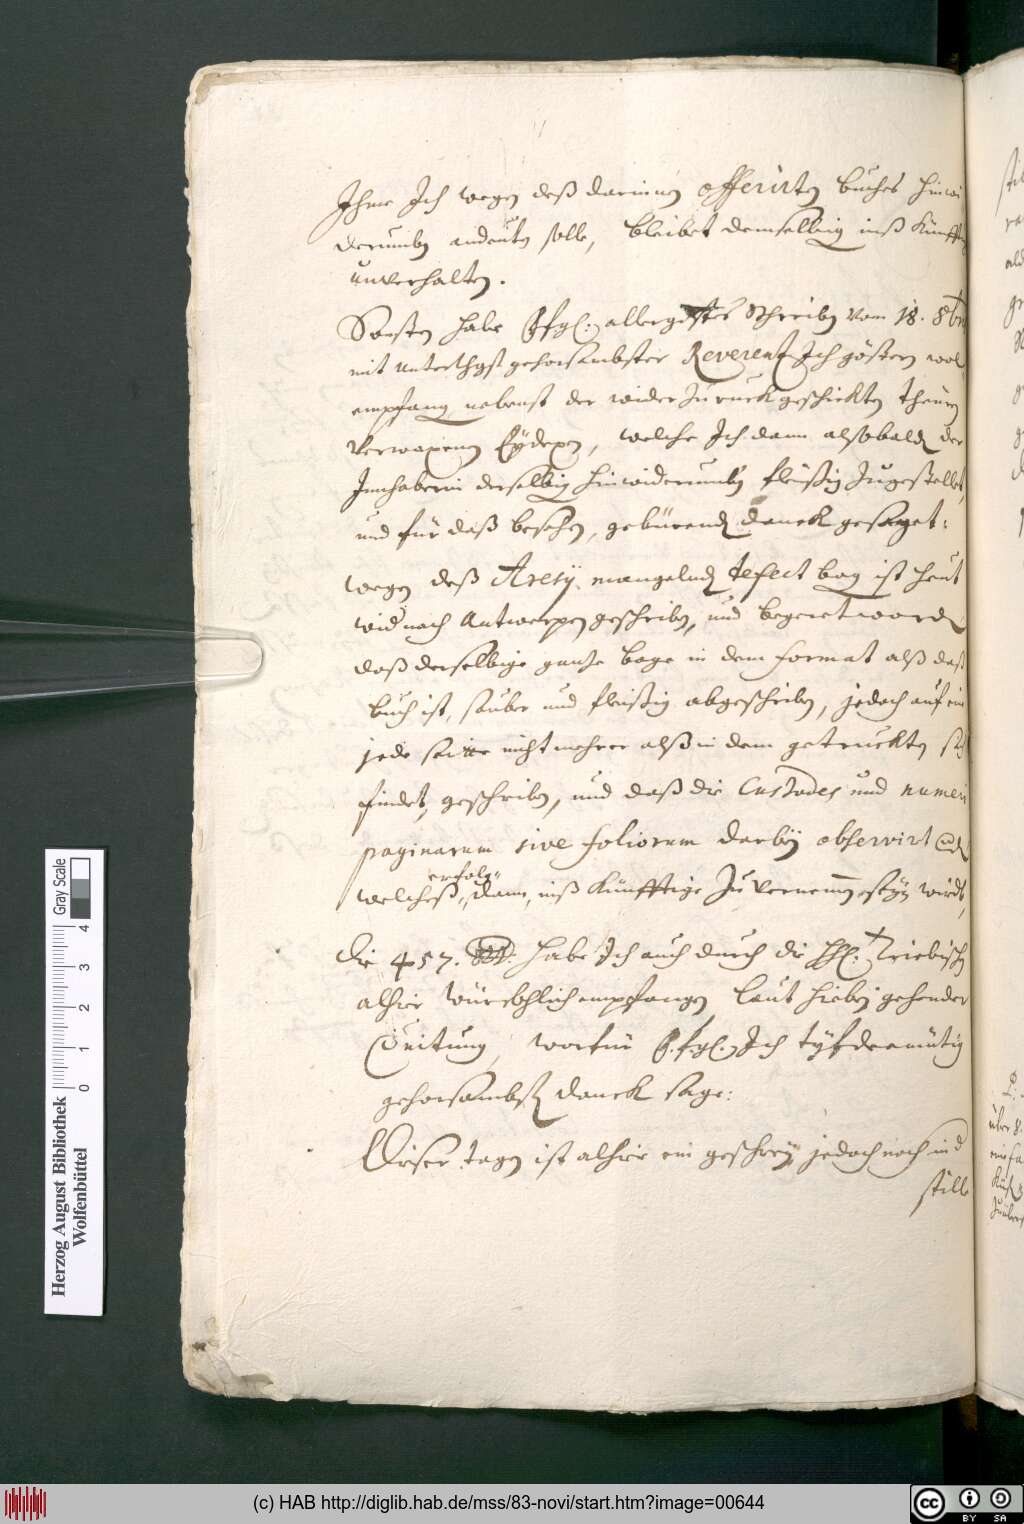 Ihme Ich wegen deß darinnen offerirten buches hinwi
derumben andeuten solle, bleibet demselbig inß künfftig
unverhalten.
Sonsten habe E. fgl: allergstes Schreiben vom 18. 8br
mit unterthgst gehorsambster Reverentz Ich göstern wol
empfang nebenst der wider zuruckgeschickten theuren
Eydexen, welche Ich dann alsobald der
Innhaberin derselbig hinwiderumben fleißig zugestellet,
und für daß besehen, gebürend danck gesaget:
wegen deß Aresÿ mangelnd defect bog ist heut
wid nach Antwerpen geschriben, und begeret word
daß derselbige gantze boge in dem format alß daß
buch ist, sauber und fleissig abgeschriben, jedoch auf ein
jede seitte nicht mehrer alß in dem getruckten sich
findet, geschriben, und daß die Custodes und numeri
paginarum sive foliorum darbeÿ observirt
erfolg
welcheß, dann, inß künfftige zu vernemen seÿn wirdt,
Die 457. habe Ich auch durch die hh.
alhie würckhlich empfangen, laut hiebeÿ gehender
Quitung, worfür E. fgl. Ich tüfdemütig
gehorsambst danck sage:
Diser tagen ist alhie ein geschreÿ, jedoch noch in d
stille
0 1 2 3 4
Gray Scale
Herzog August Bibliothek
Wolfenbüttel
(c) HAB http://diglib.hab.de/mss/83-novi/start.htm?image=00644
cc BY SA